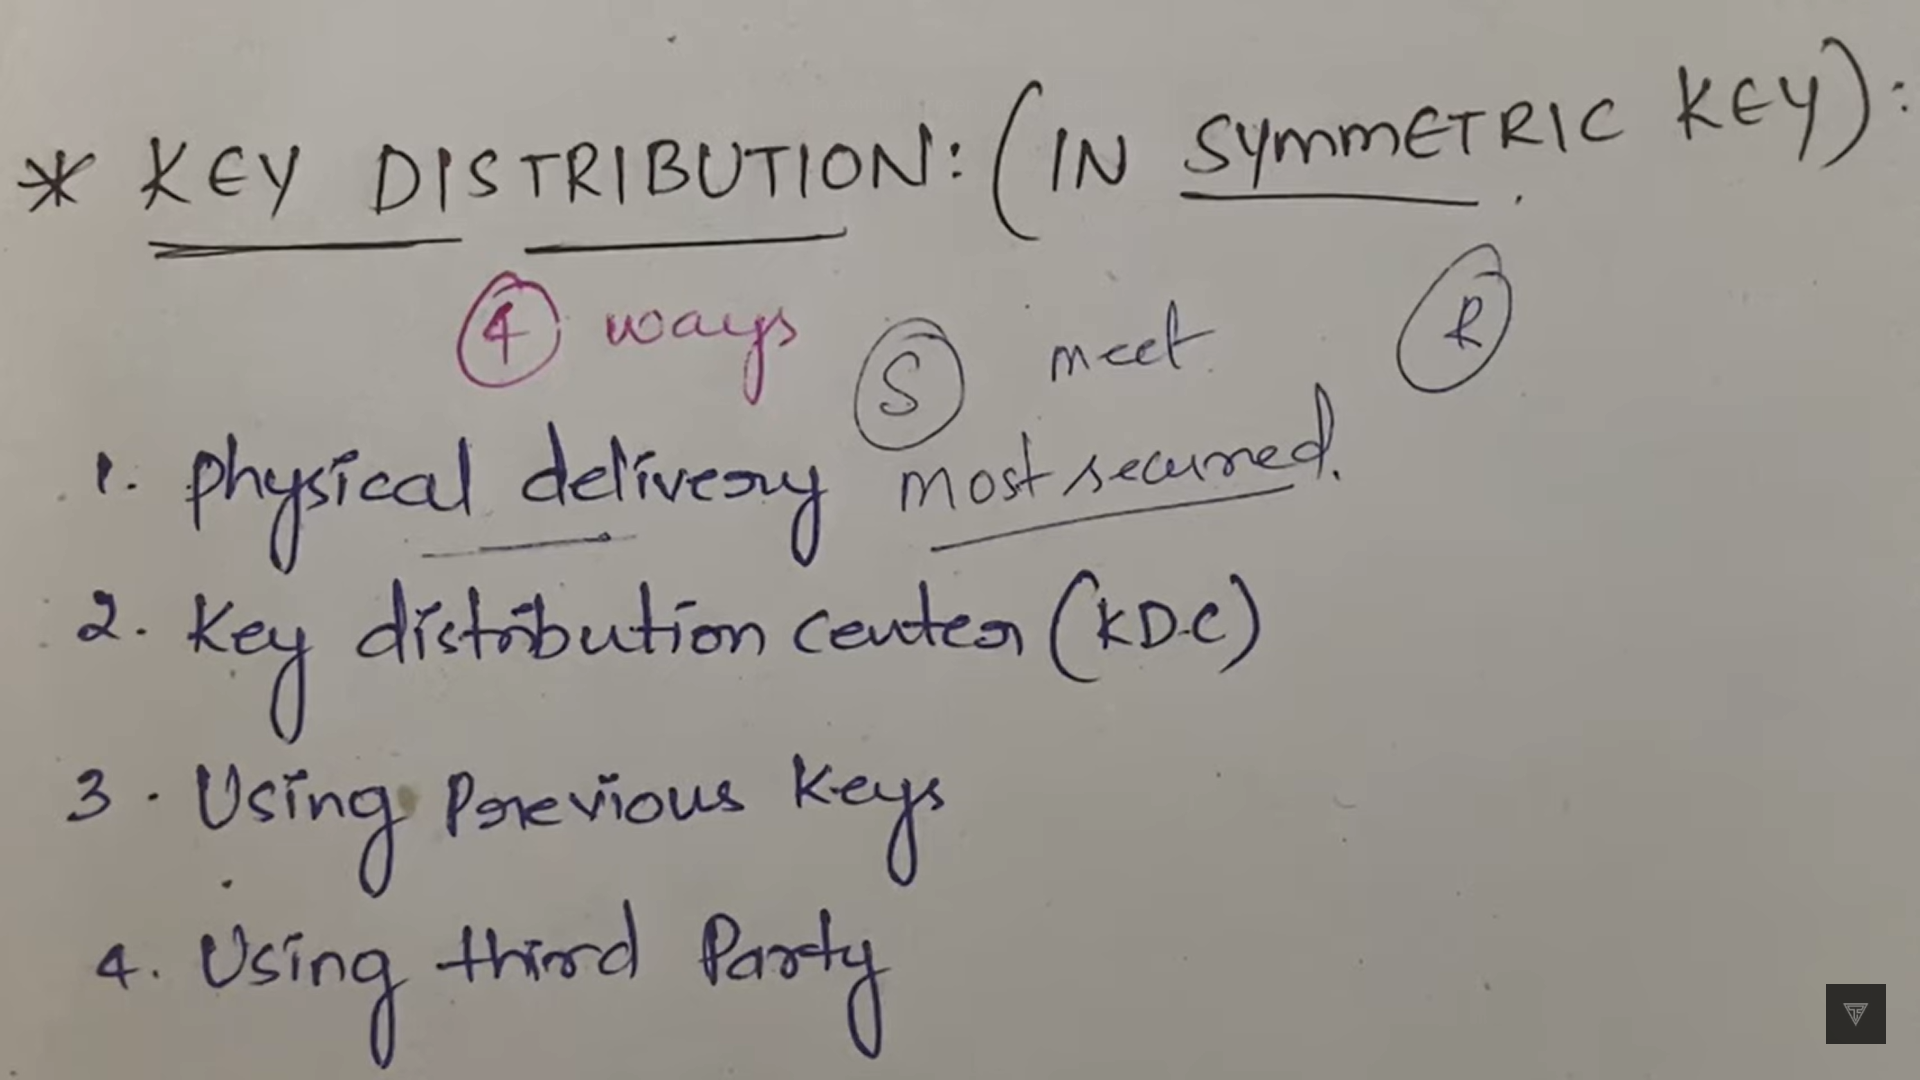 * KEY DISTRIBUTION: (IN SYMMETRIC KEY):
4 ways
S meet R
1. Physical delivery most secured.
2. Key distribution center (KDC)
3. Using Previous Keys
4. Using third Party